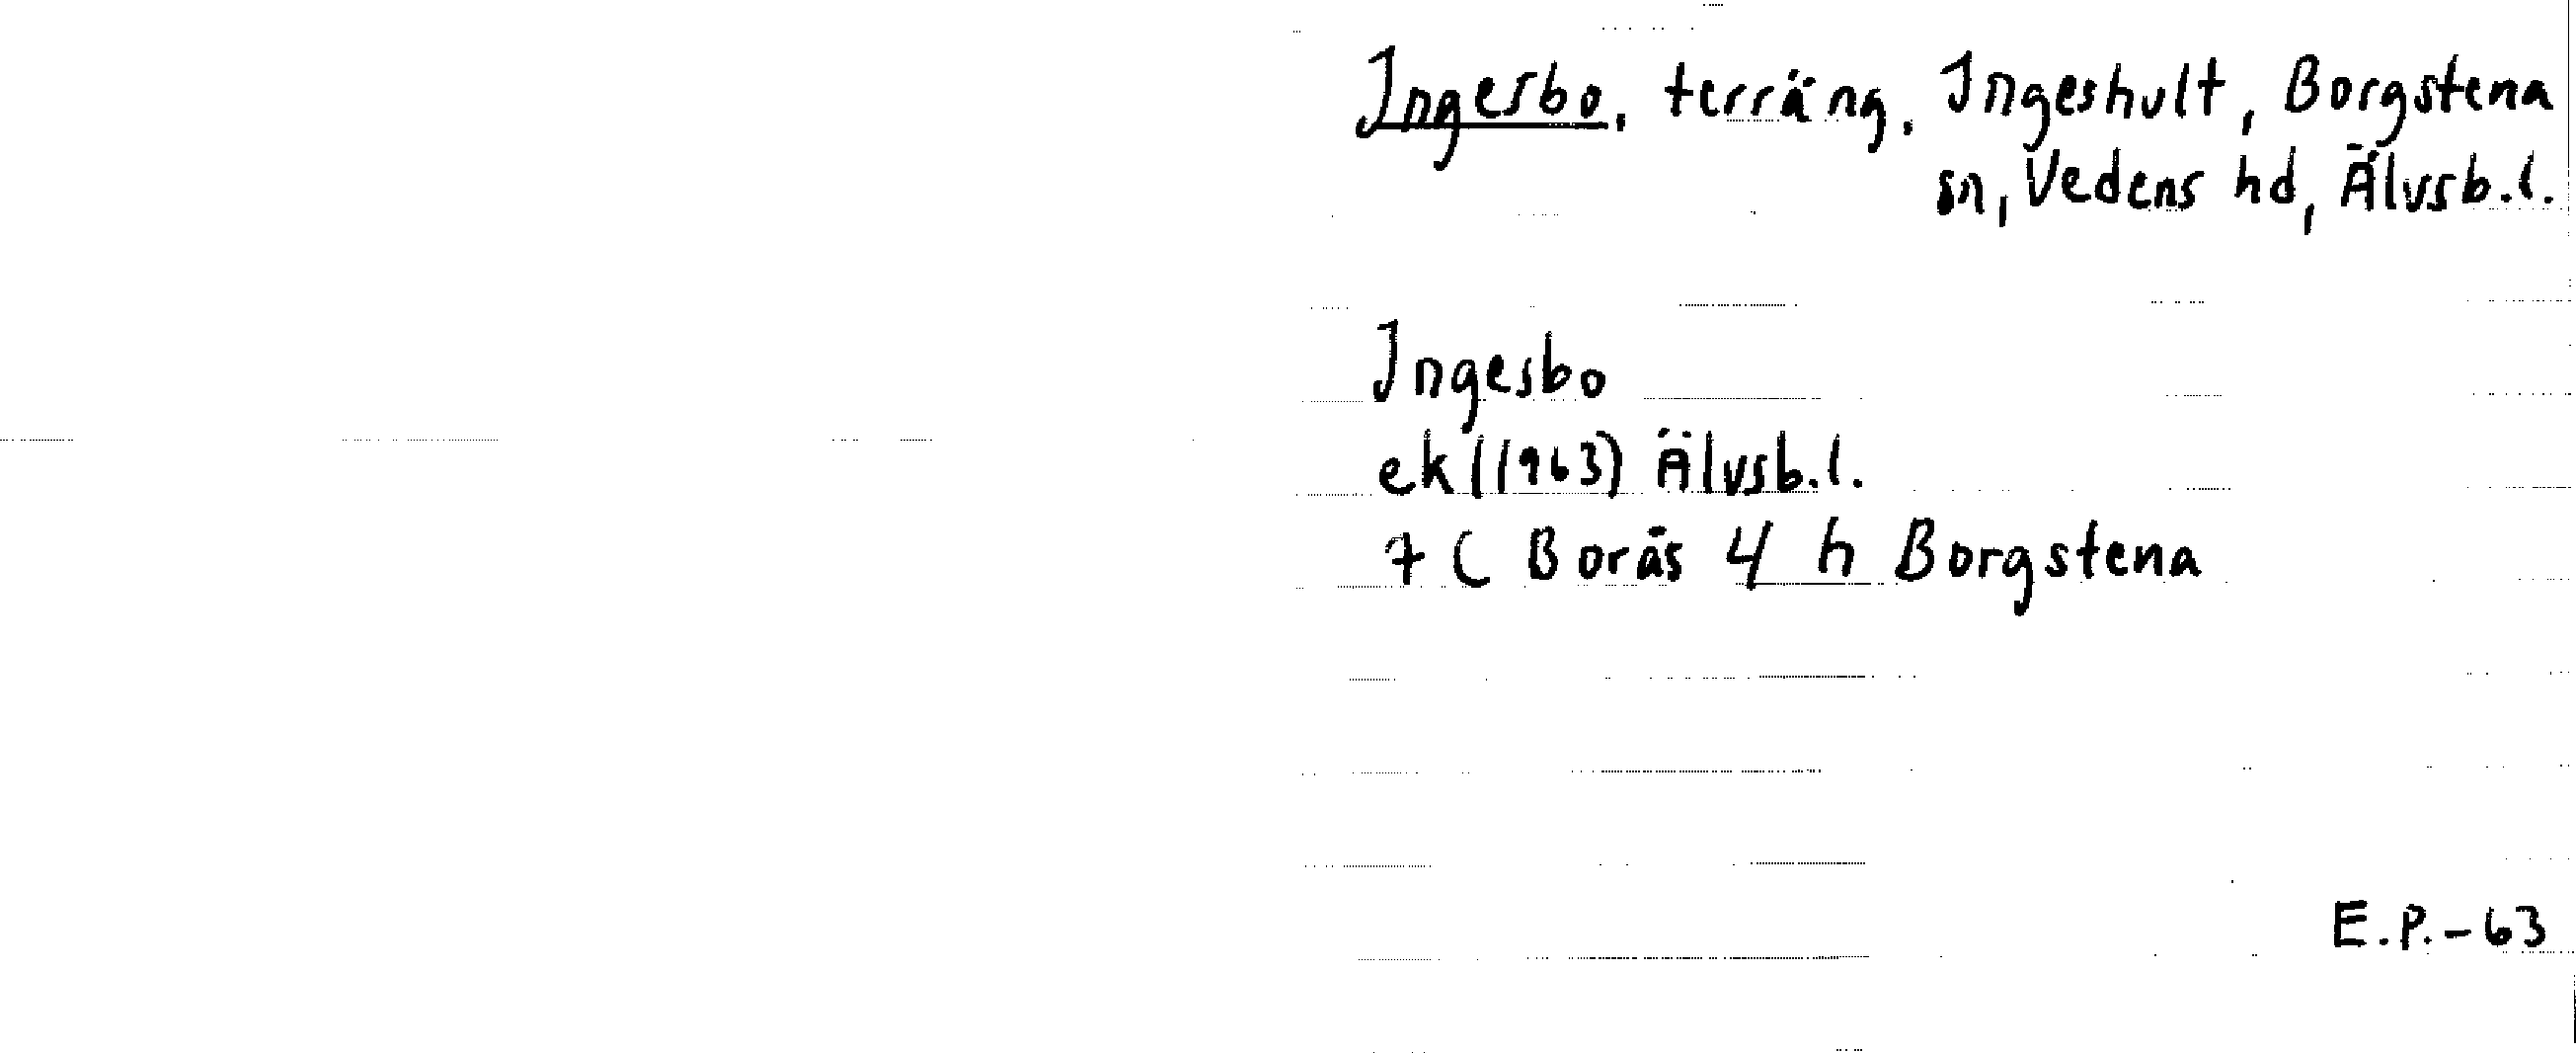 Ingesbo, terräng, Ingeshult, Borgstena
sn, Vedens hd, Älvsb.l.
Ingesbo
ek (1963) Älvsb.l.
7 C Borås 4 h Borgstena
E.P.-63